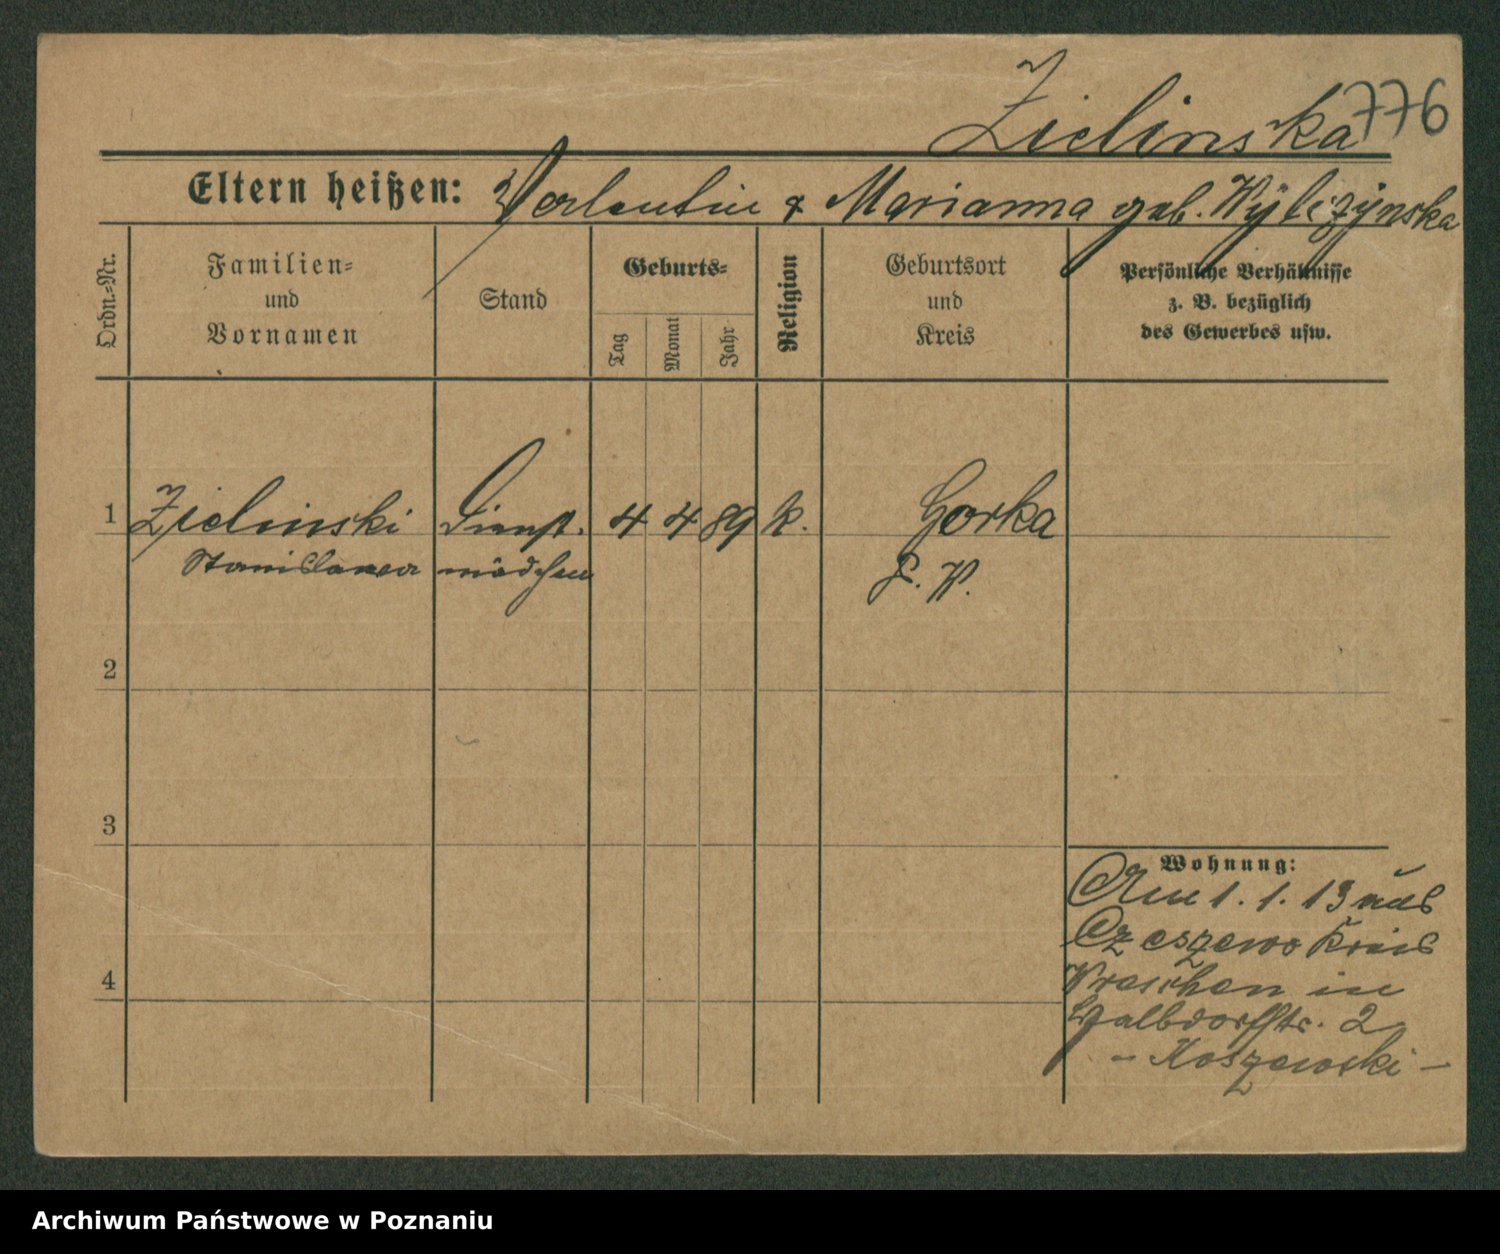 Zielinska 776
Eltern heißen: Valentin & Marianna geb. Wylczynska
Ordn.-Nr.
Familien-
und
Vornamen
Stand
Geburts-
Tag
Monat
Jahr
Religion
Geburtsort
und
Kreis
Persönliche Verhältnisse
z. B. bezüglich
des Gewerbes usw.
1 Zielinski Dienst. 4 4 89 k. Gorka
Stanislawa mädchen
2
3
4
Wohnung:
Am 1. 1. 13 aus
Czeszewo Kreis
Wreschen in
Halbdorfstr. 2
- Koszewski -
Archiwum Państwowe w Poznaniu